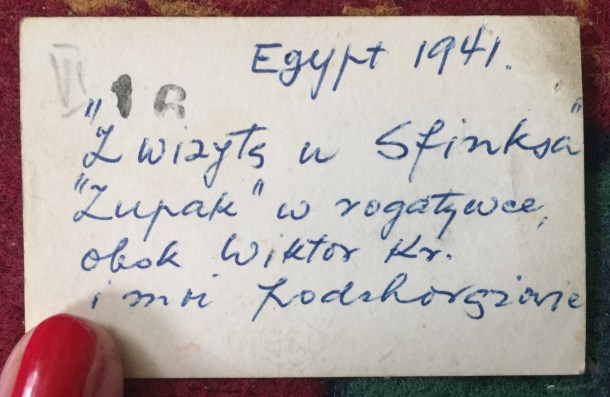 Egypt 1941.
VI
16
"Z wizytą u Sfinksa"
"Zupak" w rogatywce,
obok Wiktor Kr.
i moi podchorążowie